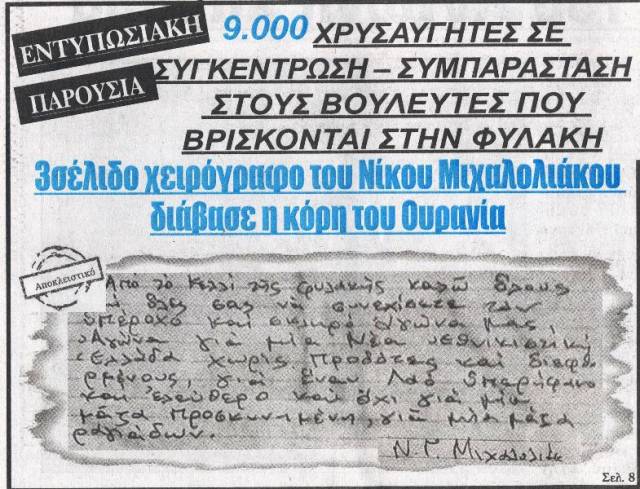 ΕΝΤΥΠΩΣΙΑΚΗ
ΠΑΡΟΥΣΙΑ
9.000 ΧΡΥΣΑΥΓΗΤΕΣ ΣΕ
ΣΥΓΚΕΝΤΡΩΣΗ – ΣΥΜΠΑΡΑΣΤΑΣΗ
ΣΤΟΥΣ ΒΟΥΛΕΥΤΕΣ ΠΟΥ
ΒΡΙΣΚΟΝΤΑΙ ΣΤΗΝ ΦΥΛΑΚΗ
3σέλιδο χειρόγραφο του Νίκου Μιχαλολιάκου
διάβασε η κόρη του Ουρανία
Αποκλειστικό
Από το Κελλί της φυλακής καλώ όλους
όλες σας να συνεχίσετε τον
Υπέροχο και σκληρό Αγώνα μας,
Αγώνα για μία Νέα εθνικιστική
Ελλάδα χωρίς Προδότες και διεφθ
ρμένους, για έναν Λαό Υπερήφανο
και ελεύθερο και όχι για μια
μάζα προσκυνημένη, για μια μάζα
ραγιάδων.
Ν.Γ. Μιχαλολιάκ
Σελ. 8